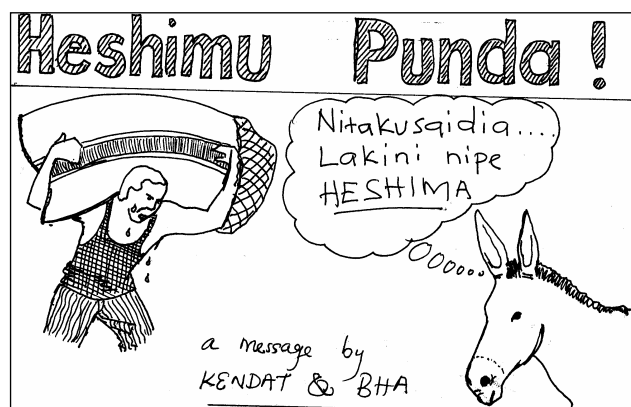 Heshimu Punda!
Nitakusaidia.....
Lakini nipe
HESHIMA
a message by
KENDAT & BHA